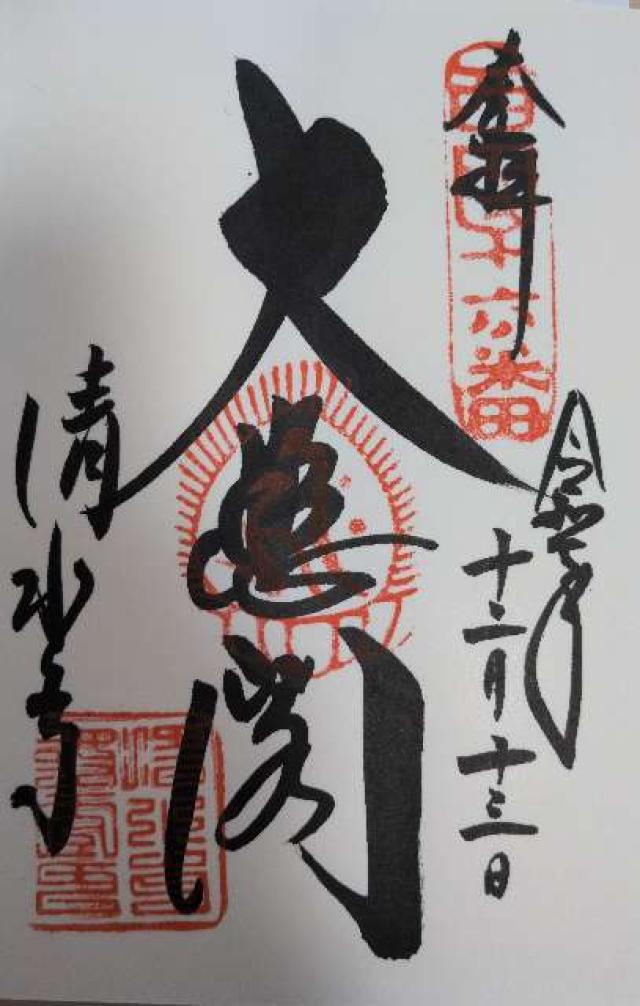 奉拝
西国十六番
令和年
十二月十三日
大悲閣
清水寺